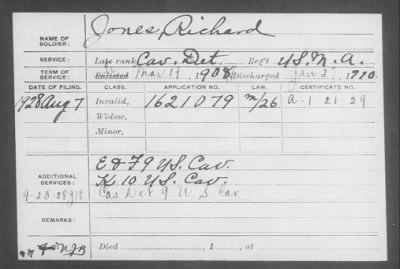 NAME OF SOLDIER: Jones, Richard
SERVICE: Late rank Cav. Det. Reg't U.S.M.A.
TERM OF SERVICE: Enlisted Mar 19, 1908 Discharged Jan 27, 1910.
DATE OF FILING. CLASS. APPLICATION NO. LAW. CERTIFICATE NO.
1928 Aug 7 Invalid, 1621079 m/26 A-1 21 29
Widow,
Minor,
ADDITIONAL SERVICES: E & F 9 U.S. Cav.
K 10 U.S. Cav.
Cav Det 9 U S Cav
REMARKS:
Died , 1 , at